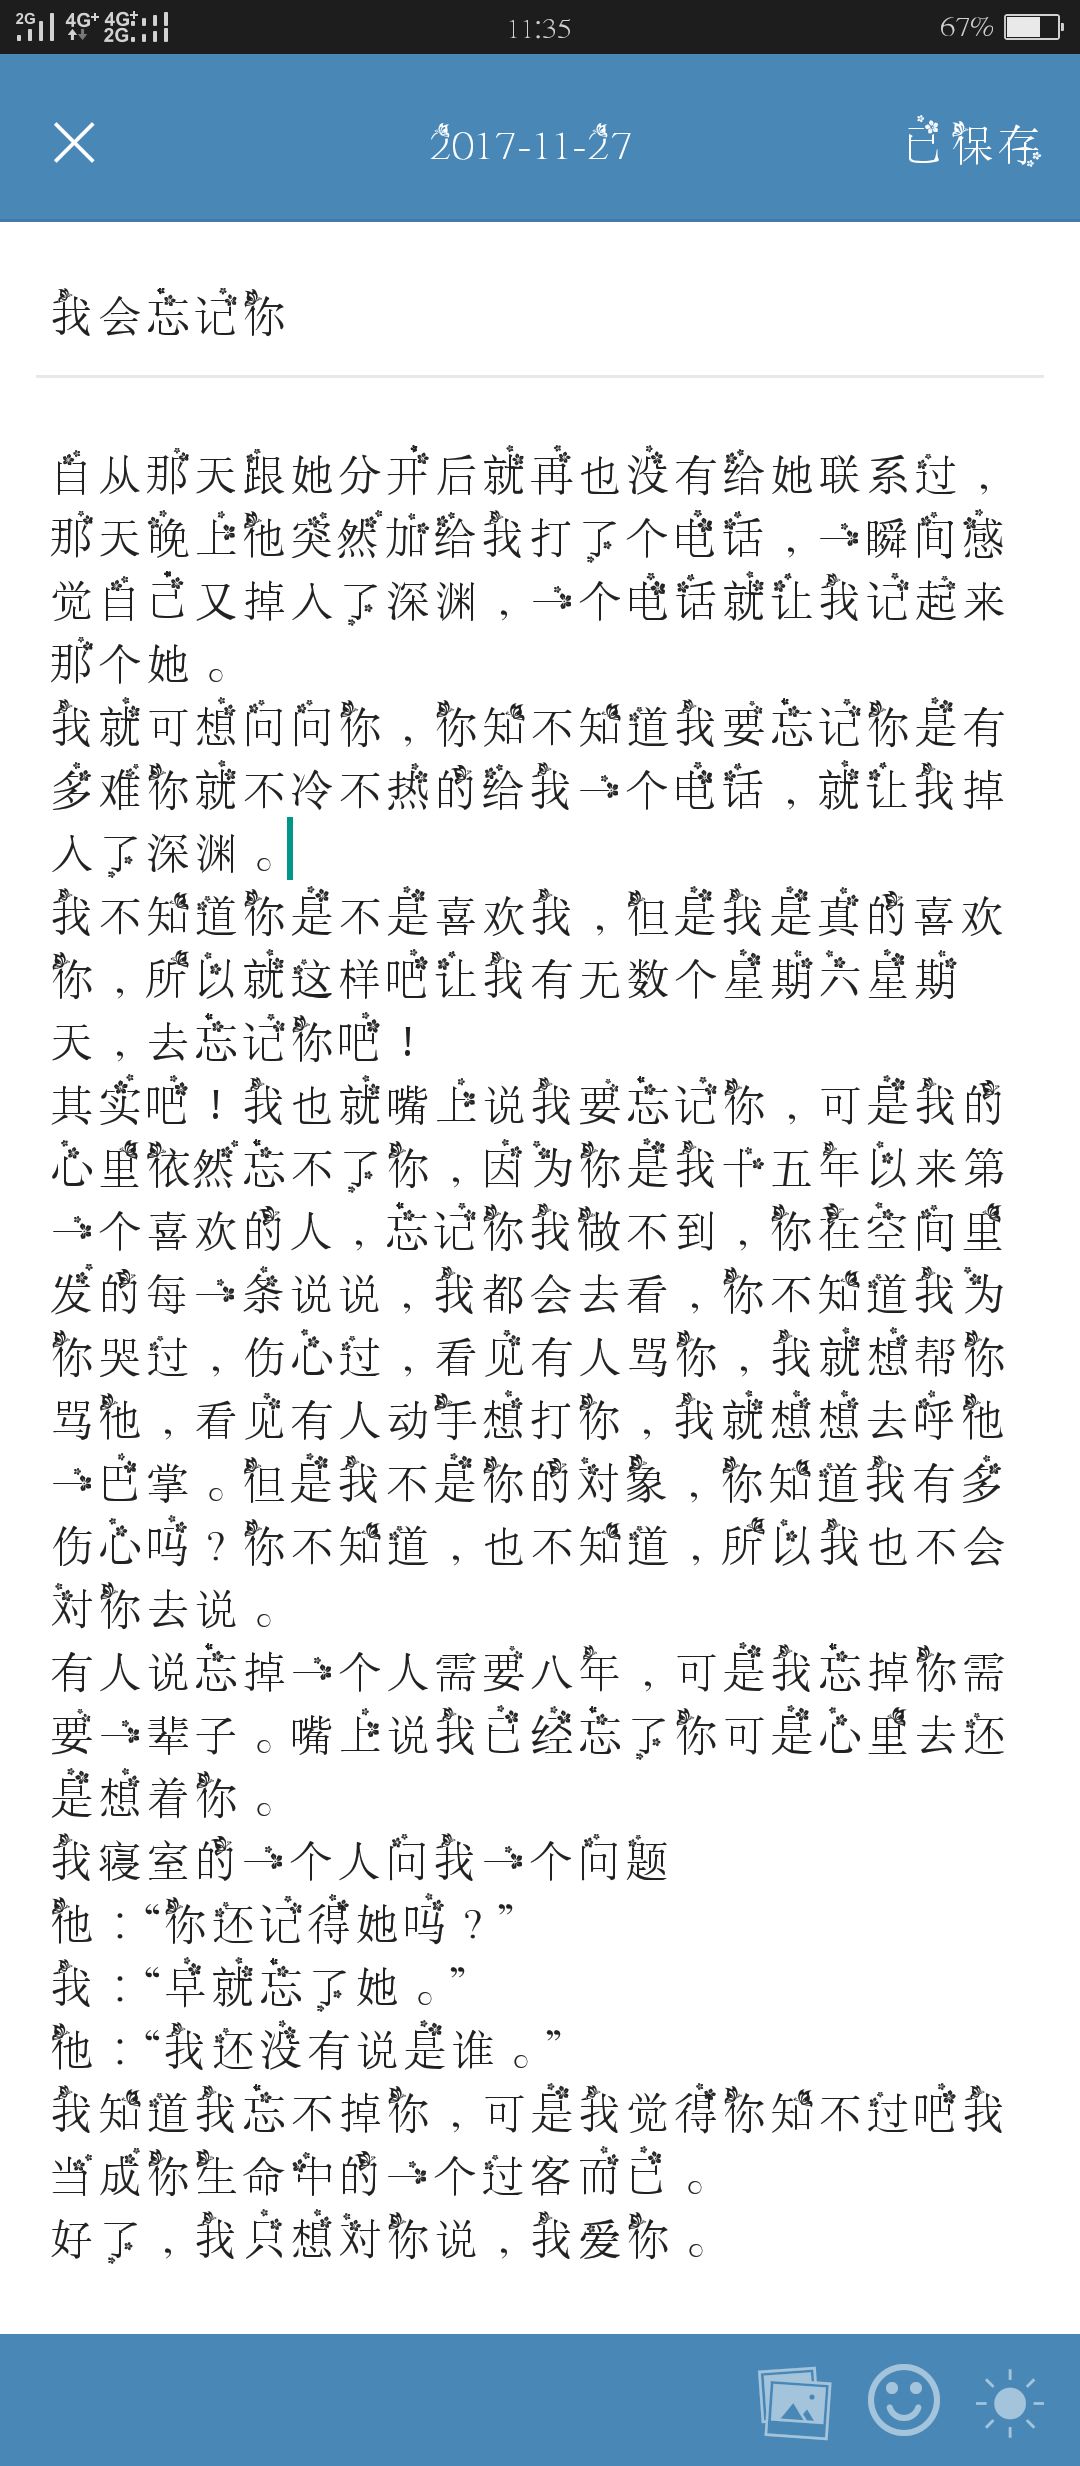 2G 4G+ 4G+ 2G 11:35 67%
2017-11-27 已保存
我会忘记你
自从那天跟她分开后就再也没有给她联系过，
那天晚上他突然加给我打了个电话，一瞬间感
觉自己又掉入了深渊，一个电话就让我记起来
那个她。
我就可想问问你，你知不知道我要忘记你是有
多难你就不冷不热的给我一个电话，就让我掉
入了深渊。
我不知道你是不是喜欢我，但是我是真的喜欢
你，所以就这样吧让我有无数个星期六星期
天，去忘记你吧！
其实吧！我也就嘴上说我要忘记你，可是我的
心里依然忘不了你，因为你是我十五年以来第
一个喜欢的人，忘记你我做不到，你在空间里
发的每一条说说，我都会去看，你不知道我为
你哭过，伤心过，看见有人骂你，我就想帮你
骂他，看见有人动手想打你，我就想想去呼他
一巴掌。但是我不是你的对象，你知道我有多
伤心吗？你不知道，也不知道，所以我也不会
对你去说。
有人说忘掉一个人需要八年，可是我忘掉你需
要一辈子。嘴上说我已经忘了你可是心里去还
是想着你。
我寝室的一个人问我一个问题
他：“你还记得她吗？”
我：“早就忘了她。”
他：“我还没有说是谁。”
我知道我忘不掉你，可是我觉得你知不过吧我
当成你生命中的一个过客而已。
好了，我只想对你说，我爱你。